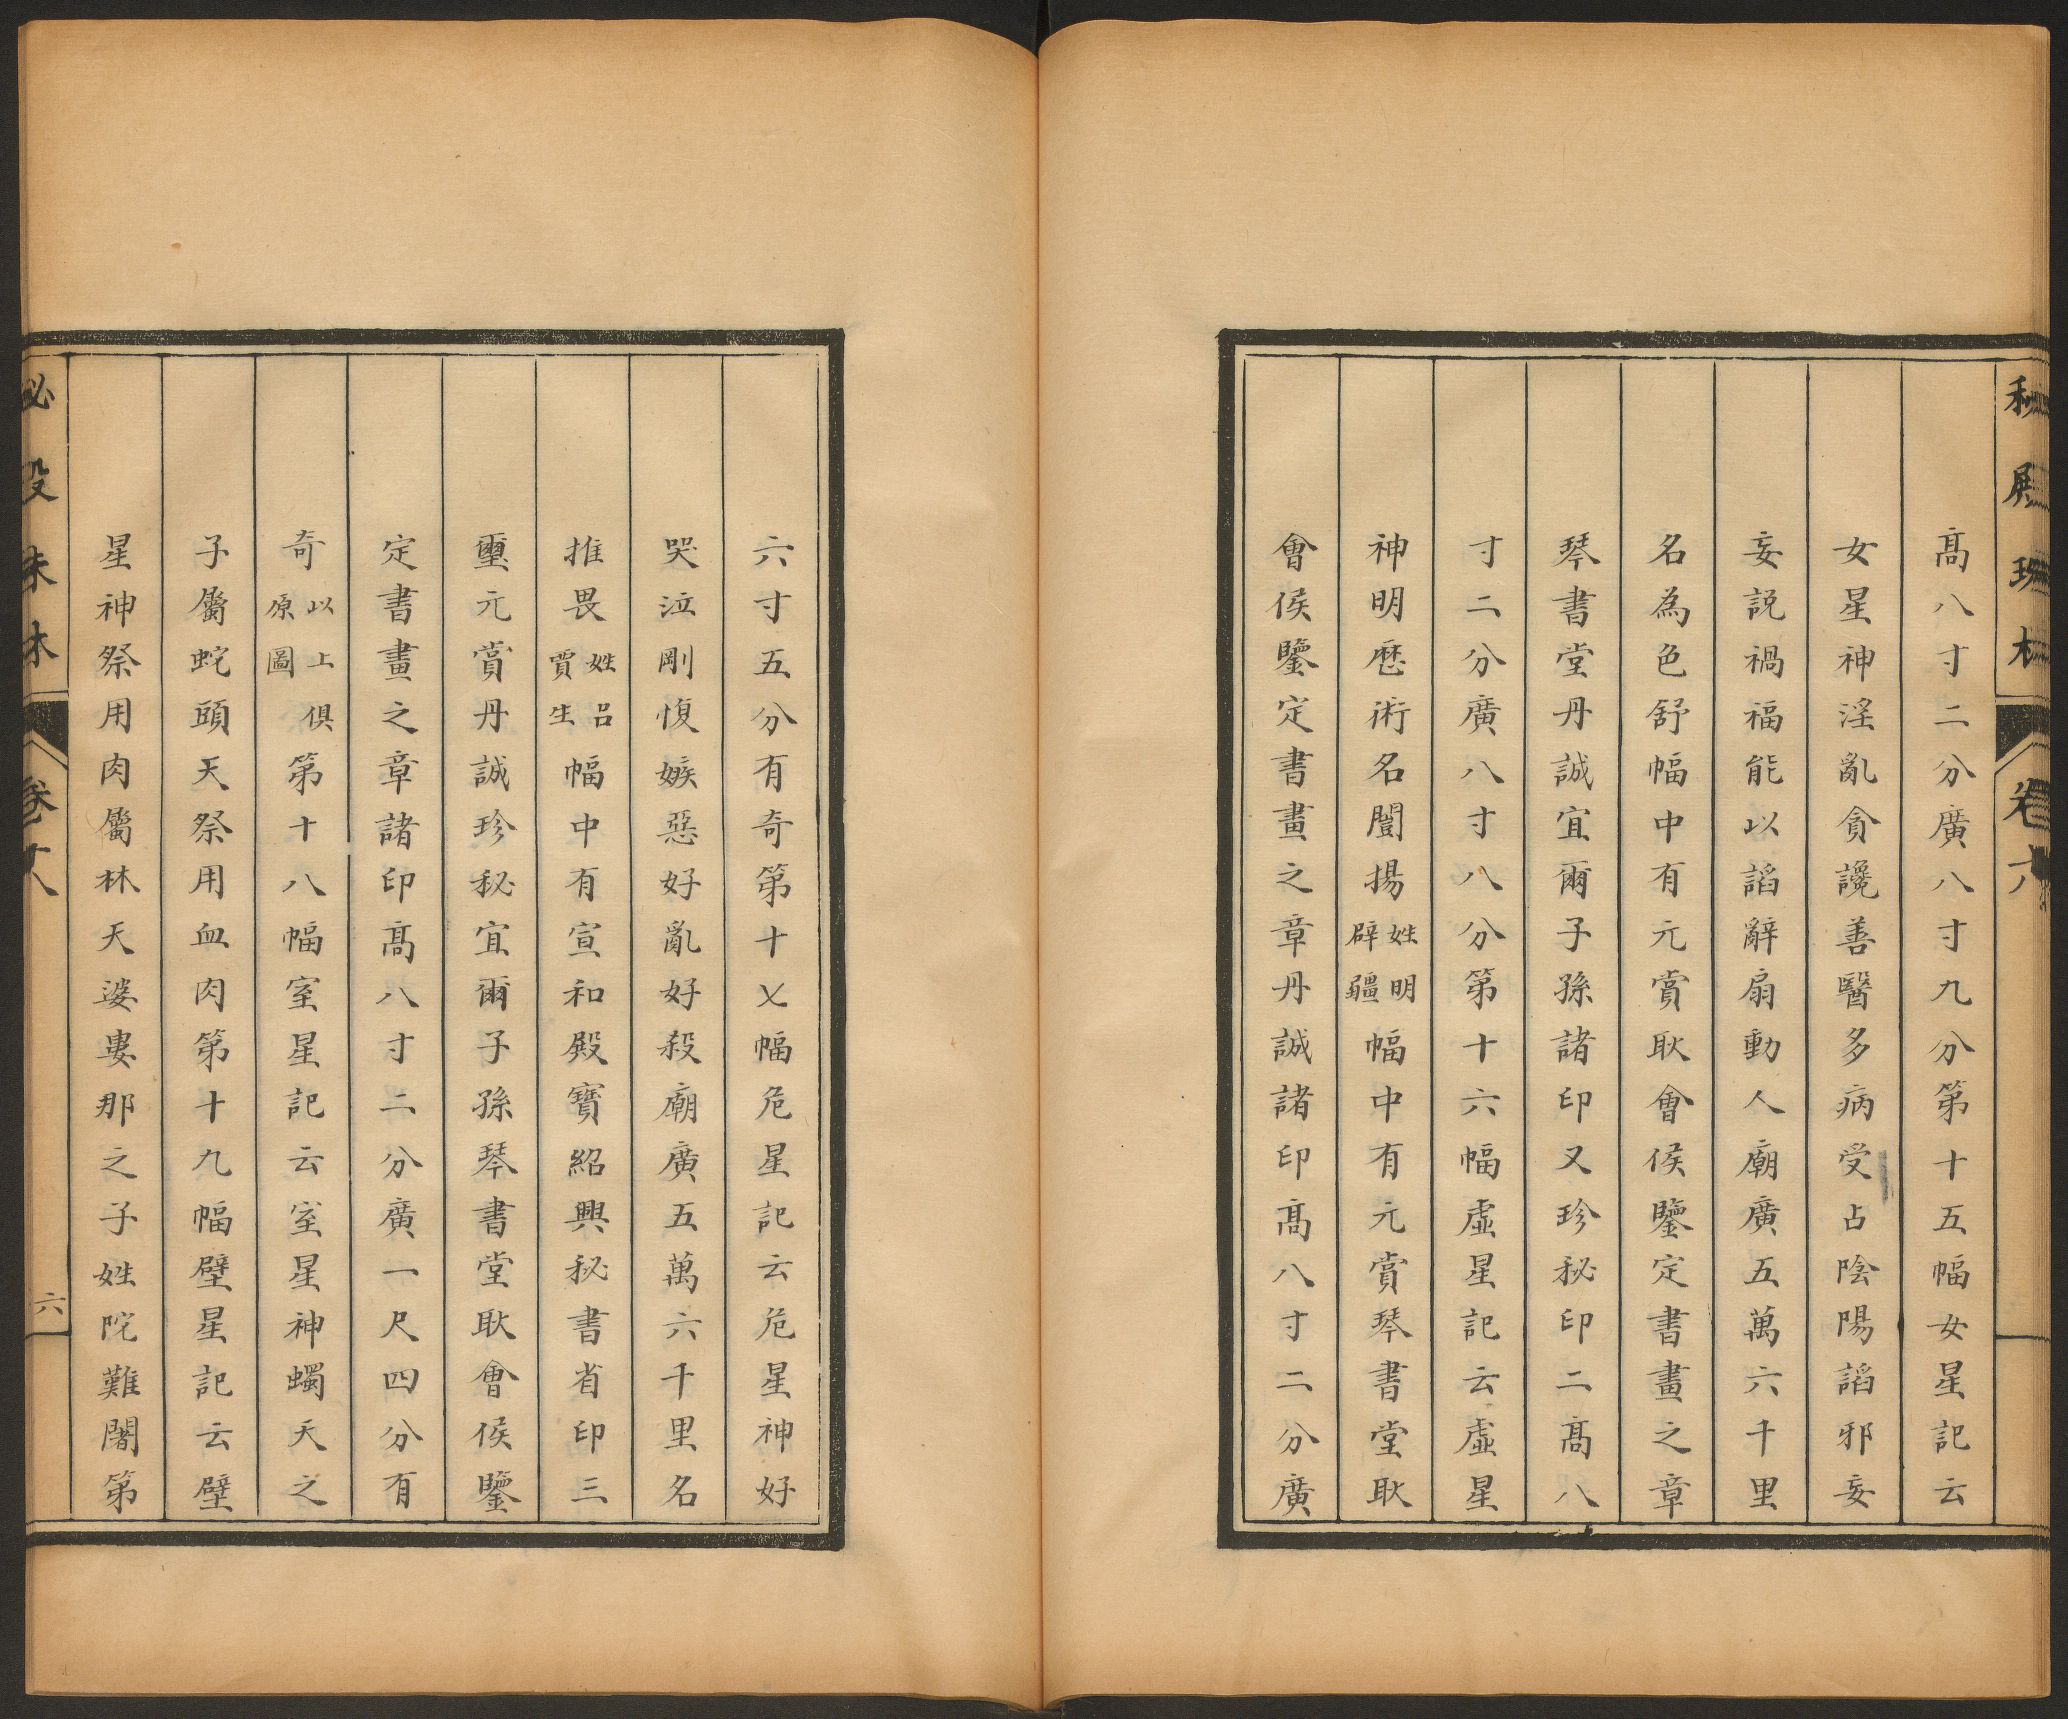 高八寸二分廣八寸九分第十五幅女星記云
女星神淫亂貪讒善醫多病受占陰陽謟邪妄
妄説禍福能以謟辭扇動人廟廣五萬六千里
名為色舒幅中有元賞耿會侯鑒定書畫之章
琴書堂丹誠宜爾子孫諸印又珍秘印二高八
寸二分廣八寸八分第十六幅虛星記云虛星
神明厯術名闓揚姓明辟疆幅中有元賞琴書堂耿
會侯鑒定書畫之章丹誠諸印高八寸二分廣
六寸五分有奇第十乂幅危星記云危星神好
哭泣剛愎嫉惡好亂好殺廟廣五萬六千里名
推畏姓呂賈生幅中有宣和殿寶紹興秘書省印三
璽元賞丹誠珍秘宜爾子孫琴書堂耿會侯鑒
定書畫之章諸印高八寸二分廣一尺四分有
奇以上俱原圖第十八幅室星記云室星神蠋天之
子屬蛇頭天祭用血肉第十九幅壁星記云壁
星神祭用肉屬林天婆婁那之子姓陀難闍第
六